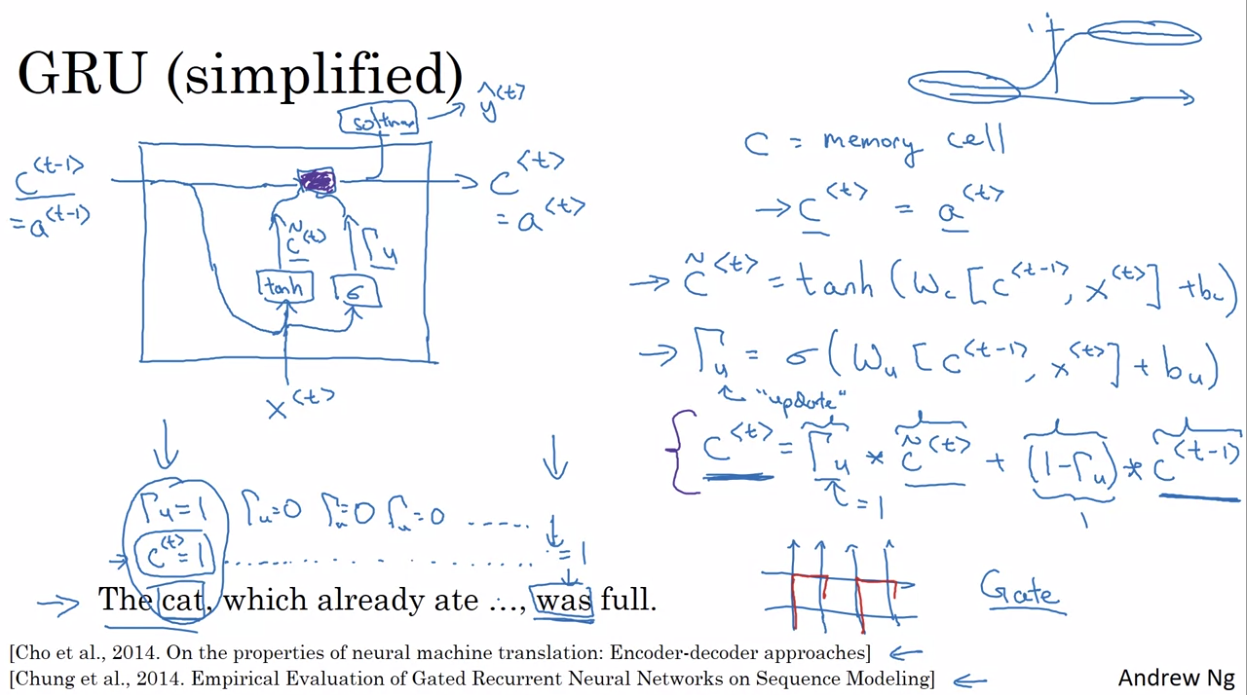 GRU (simplified)
softmax → ŷ<t>
c<t-1>
=a<t-1>
c̃<t>
Γu
tanh
σ
c<t>
=a<t>
x<t>
1
C = memory cell
→ c<t> = a<t>
→ c̃<t> = tanh(Wc[c<t-1>, x<t>] + bc)
→ Γu = σ(Wu[c<t-1>, x<t>] + bu)
"update"
c<t> = Γu * c̃<t> + (1-Γu) * c<t-1>
=1
1
Γu=1 Γu=0 Γu=0 Γu=0 .....
c<t>=1 ............... =1
→ The cat, which already ate …, was full.
Gate
[Cho et al., 2014. On the properties of neural machine translation: Encoder-decoder approaches] ←
[Chung et al., 2014. Empirical Evaluation of Gated Recurrent Neural Networks on Sequence Modeling] ←
Andrew Ng